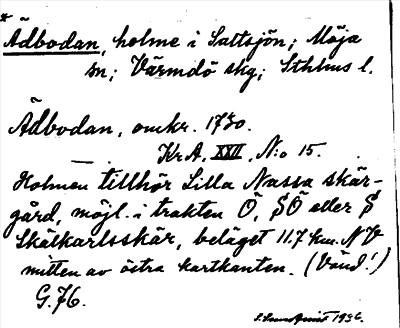 *
Ädbodan, holme i Saltsjön; Möja
sn; Värmdö skg; Sthlms l.
Ädbodan, omkr. 1730.
KrA, XXII, N:o 15.
Holmen tillhör Lilla Nassa skär-
gård, möjl. i trakten Ö, SÖ eller S
Skälkarlsskär, beläget 11.7 km. NV
mitten av östra kartkanten. (Vänd!)
G.76.
1936.